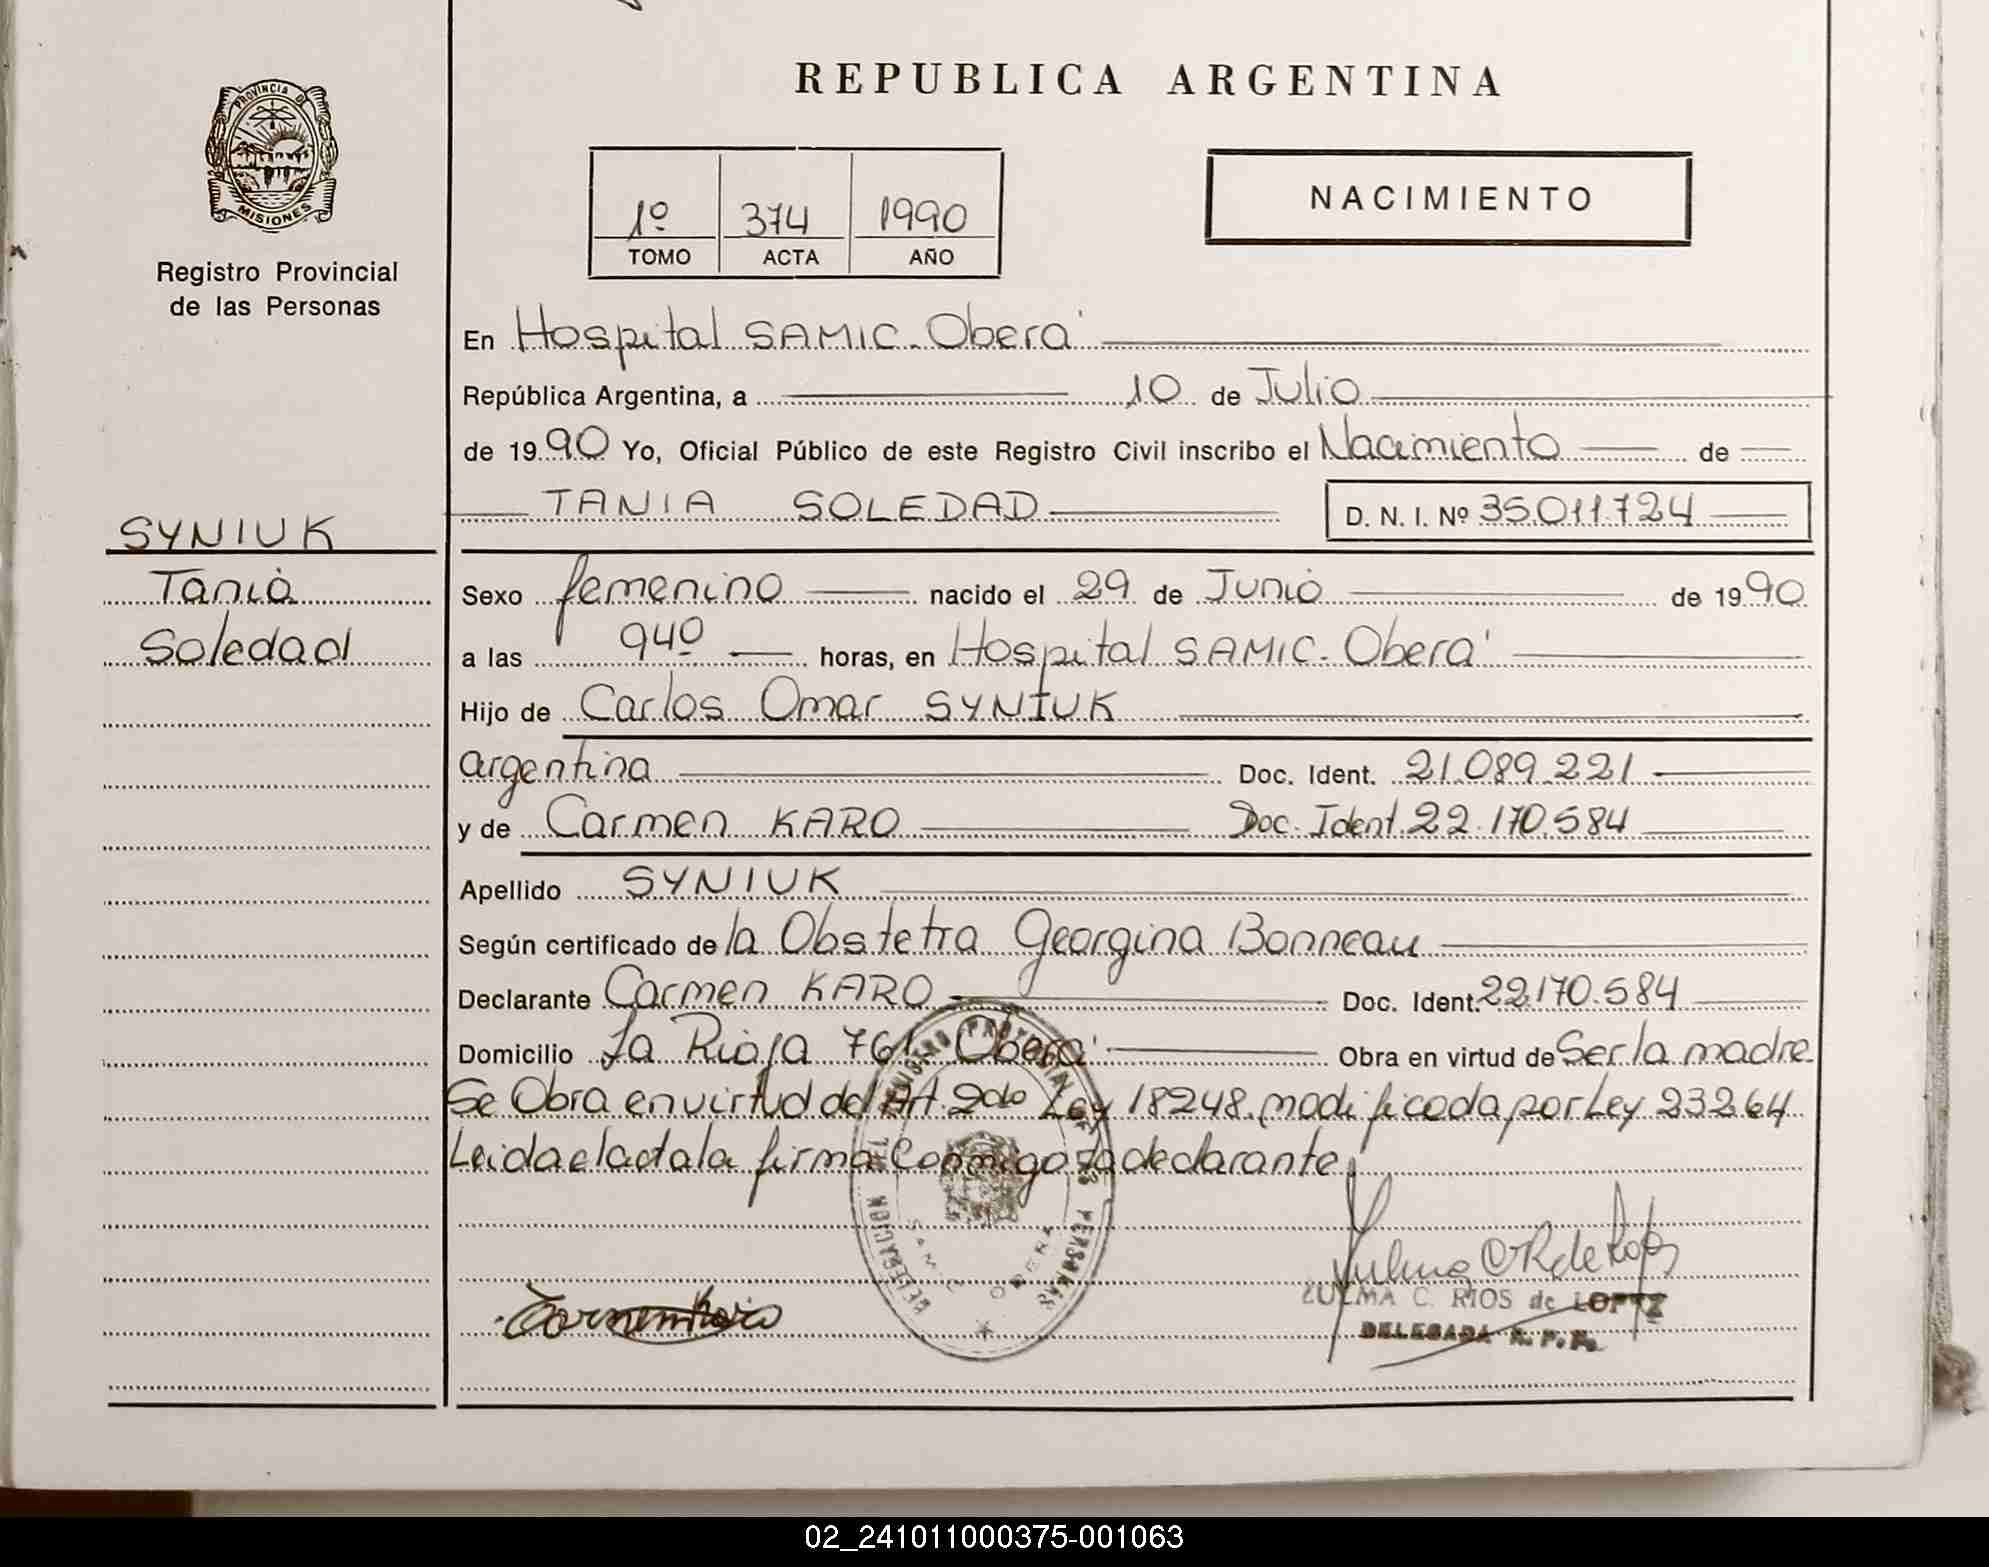 REPUBLICA ARGENTINA
PROVINCIA DE
MISIONES
Registro Provincial
de las Personas
1º 374 1990
TOMO ACTA AÑO
NACIMIENTO
En Hospital SAMIC - Oberá
República Argentina, a 10 de Julio
de 1990 Yo, Oficial Público de este Registro Civil inscribo el Nacimiento de
TANIA SOLEDAD D. N. I. Nº 35.011.724
SYNIUK
Tania
Soledad
Sexo femenino nacido el 29 de Junio de 1990
a las 9 40 horas, en Hospital SAMIC - Oberá
Hijo de Carlos Omar SYNIUK
argentina Doc. Ident. 21.089.221
y de Carmen KARO Doc. Ident. 22.170.584
Apellido SYNIUK
Según certificado de la Obstetra Georgina Bonneau
Declarante Carmen KARO Doc. Ident. 22.170.584
Domicilio La Rioja 761 Oberá Obra en virtud de Ser la madre
Se Obra en virtud del Art. 2do Ley 18248, modificada por Ley 23264
Leida el acta la firma Conmigo la declarante.
DELEGACION SAMIC OBERA
ZULMA C. RIOS de LOPEZ
DELEGADA R. P. P.
02_241011000375-001063